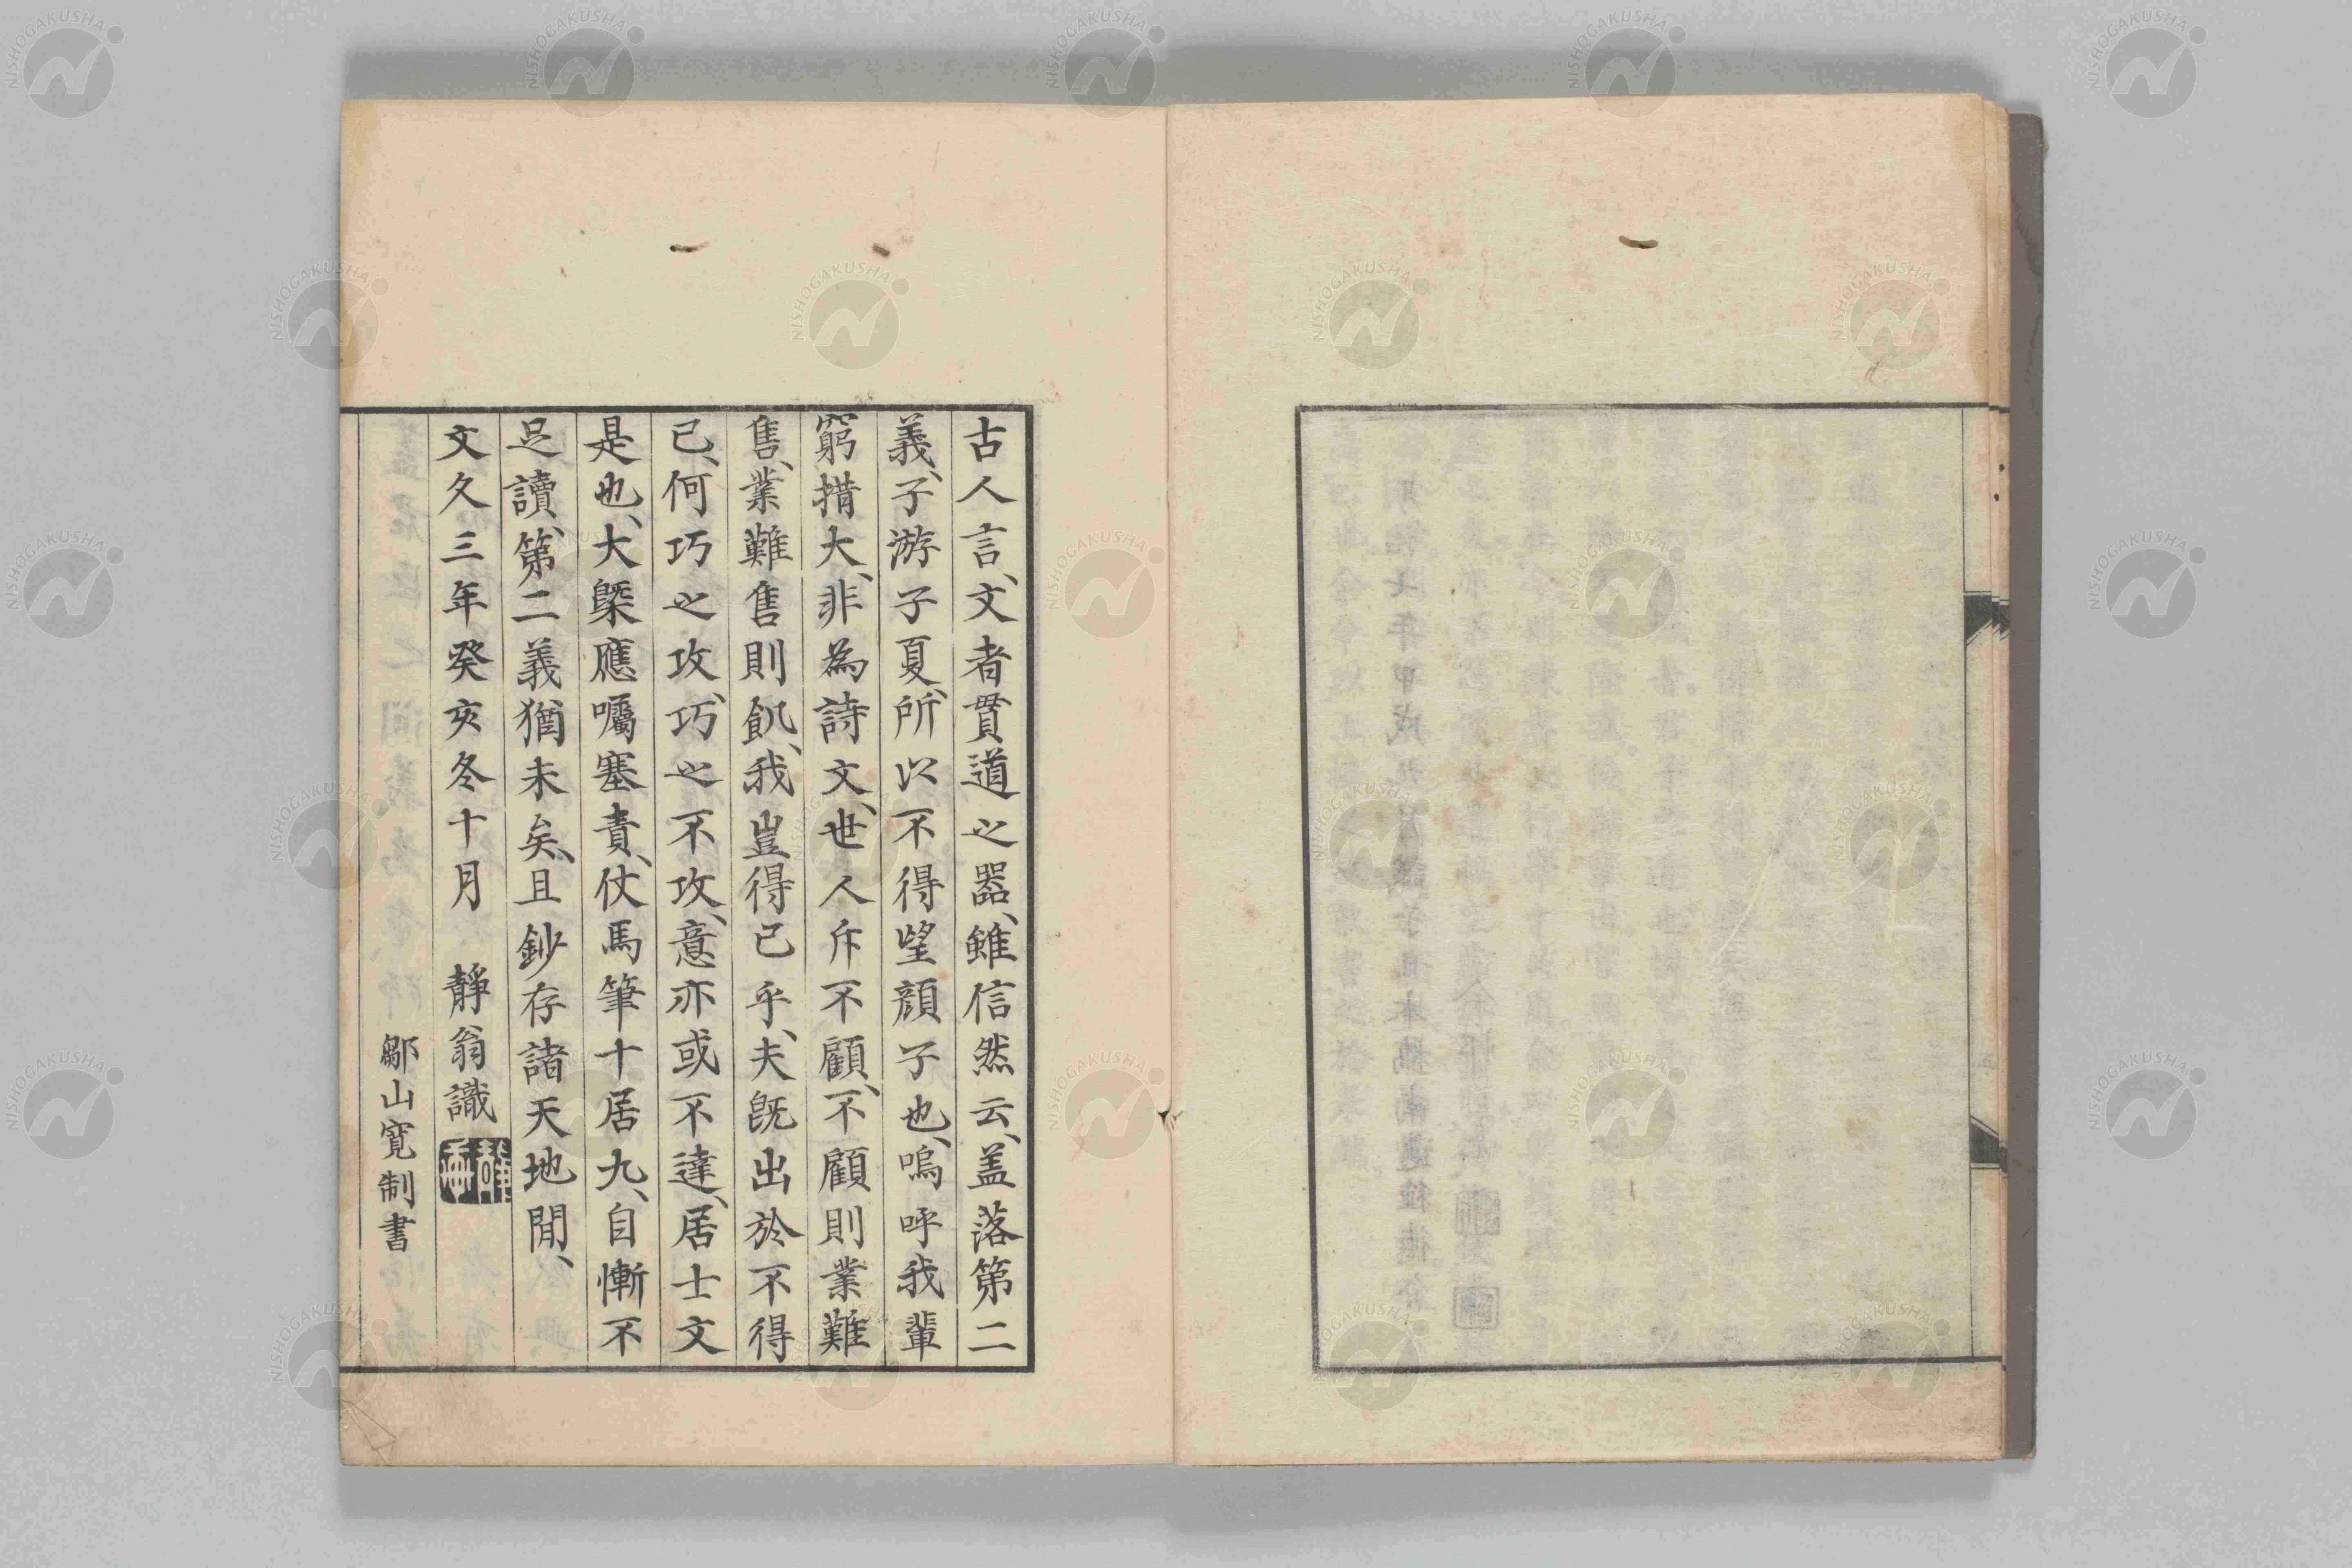 古人言、文者貫道之器、雖信然云、盖落第二
義、子游子夏、所以不得望顔子也、嗚呼我輩
窮措大、非為詩文、世人斥不顧、不顧則業難
售、業難售則飢、我豈得已乎、夫既出於不得
已、何巧之攻、巧之不攻、意亦或不達、居士文
是也、大槩應囑塞責、仗馬筆十居九、自慚不
足讀、第二義猶未矣、且鈔存諸天地閒、
文久三年癸亥冬十月 靜翁識
鄒山寬制書
NISHOGAKUSHA